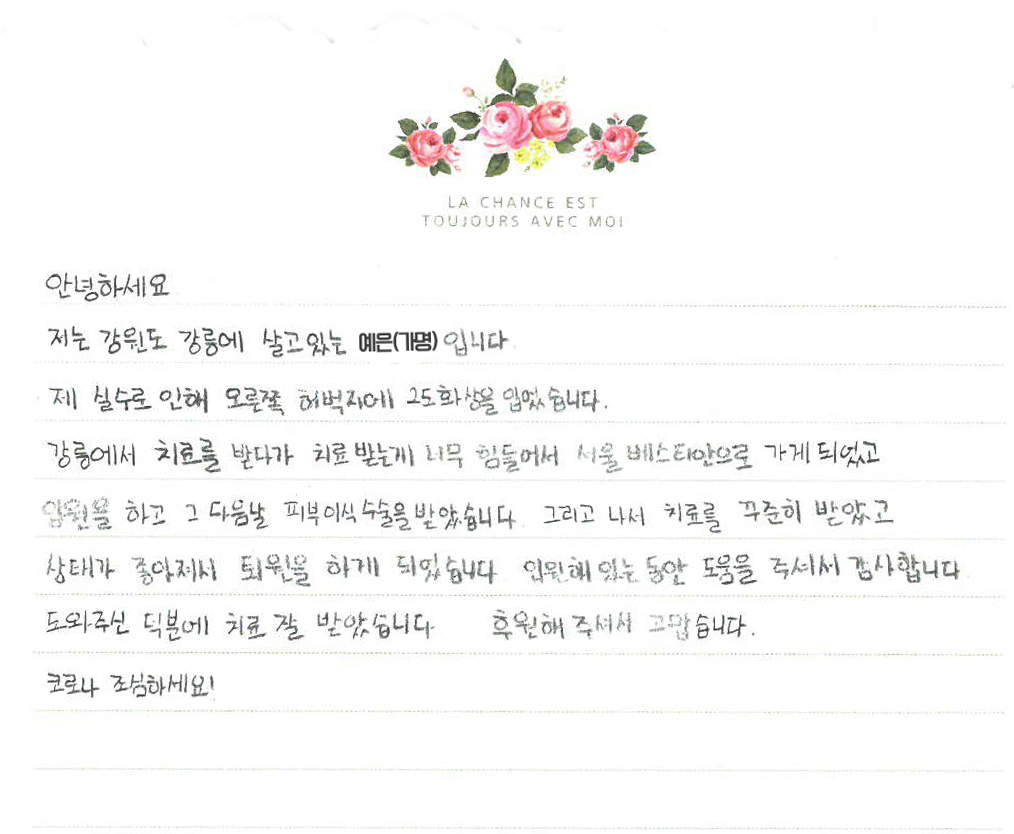 LA CHANCE EST
TOUJOURS AVEC MOI
안녕하세요
저는 강원도 강릉에 살고있는 예은(가명) 입니다.
제 실수로 인해 오른쪽 허벅지에 2도화상을 입었습니다.
강릉에서 치료를 받다가 치료 받는게 너무 힘들어서 서울 베스티안으로 가게 되었고
입원을 하고 그 다음날 피부이식 수술을 받았습니다. 그리고 나서 치료를 꾸준히 받았고
상태가 좋아져서 퇴원을 하게 되었습니다. 입원해 있는 동안 도움을 주셔서 감사합니다.
도와주신 덕분에 치료 잘 받았습니다. 후원해 주셔서 고맙습니다.
코로나 조심하세요!